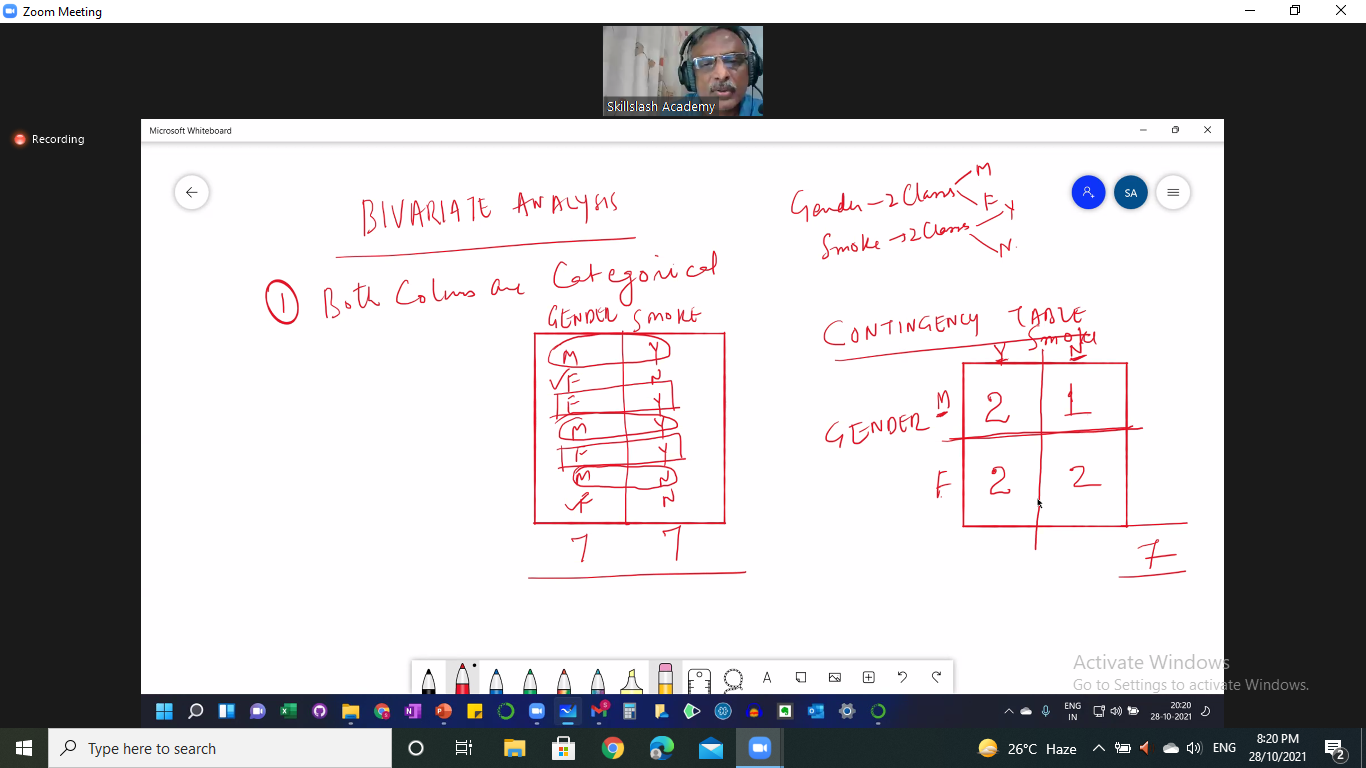 Zoom Meeting
Skillslash Academy
Recording
Microsoft Whiteboard
SA
BIVARIATE ANALYSIS
Gender - 2 Class
M
F
Smoke → 2 Class
Y
N
1 Both Colums are Categorical
GENDER SMOKE
M Y
F N
F Y
M Y
F Y
M N
F N
7 7
CONTINGENCY TABLE
Smoke
Y N
GENDER
M 2 1
F 2 2
7
Activate Windows
Go to Settings to activate Windows.
A
5
ENG
IN
20:20
28-10-2021
Type here to search
26°C Haze
ENG
8:20 PM
28/10/2021
2